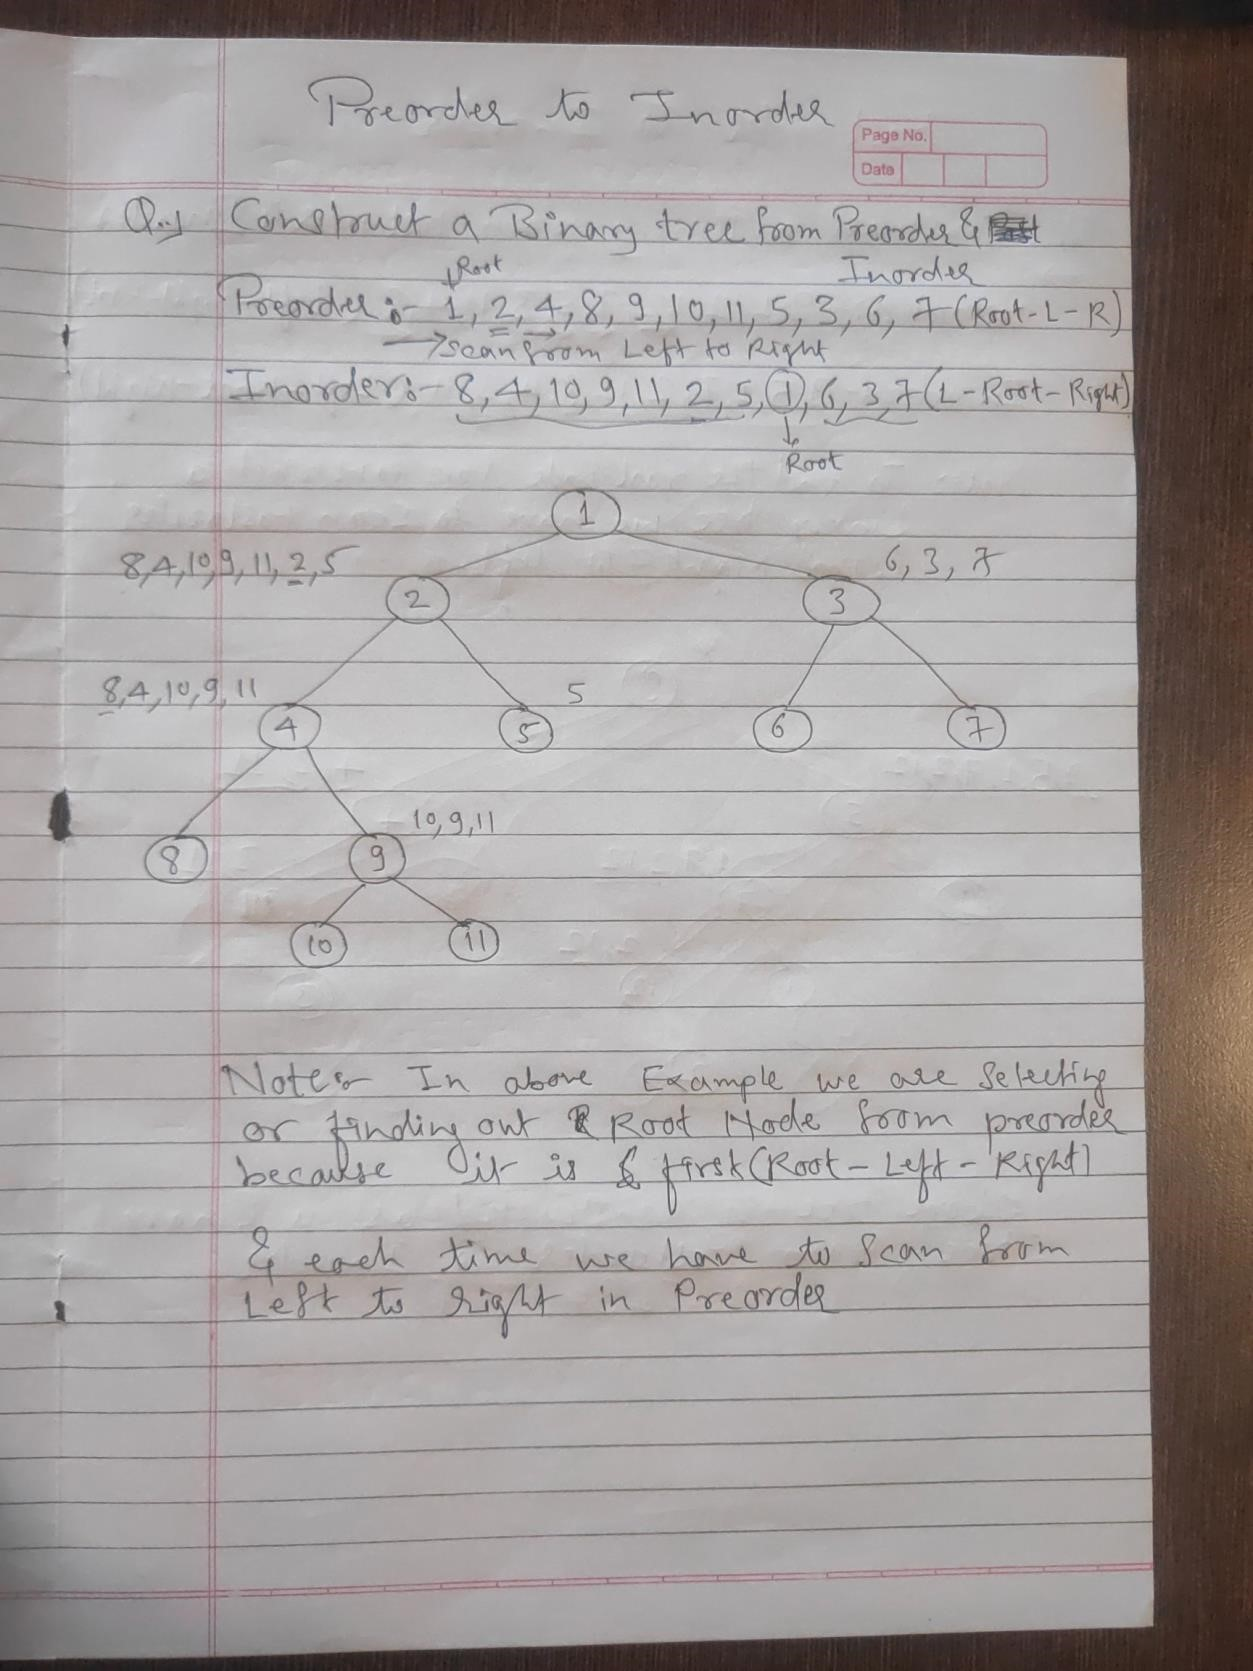 Preorder to Inorder
Page No.
Date
Q.1 Construct a Binary tree from Preorder &
Inorder
Root
Preorder :- 1, 2, 4, 8, 9, 10, 11, 5, 3, 6, 7 (Root-L-R)
→ Scan from Left to Right
Inorder :- 8, 4, 10, 9, 11, 2, 5, 1, 6, 3, 7 (L-Root-Right)
Root
1
8, 4, 10, 9, 11, 2, 5
6, 3, 7
2
3
8, 4, 10, 9, 11
5
4
5
6
7
10, 9, 11
8
9
10
11
Note :- In above Example we are Selecting
or finding out Root Node from preorder
because it is first (Root-Left-Right)
& each time we have to Scan from
Left to right in Preorder